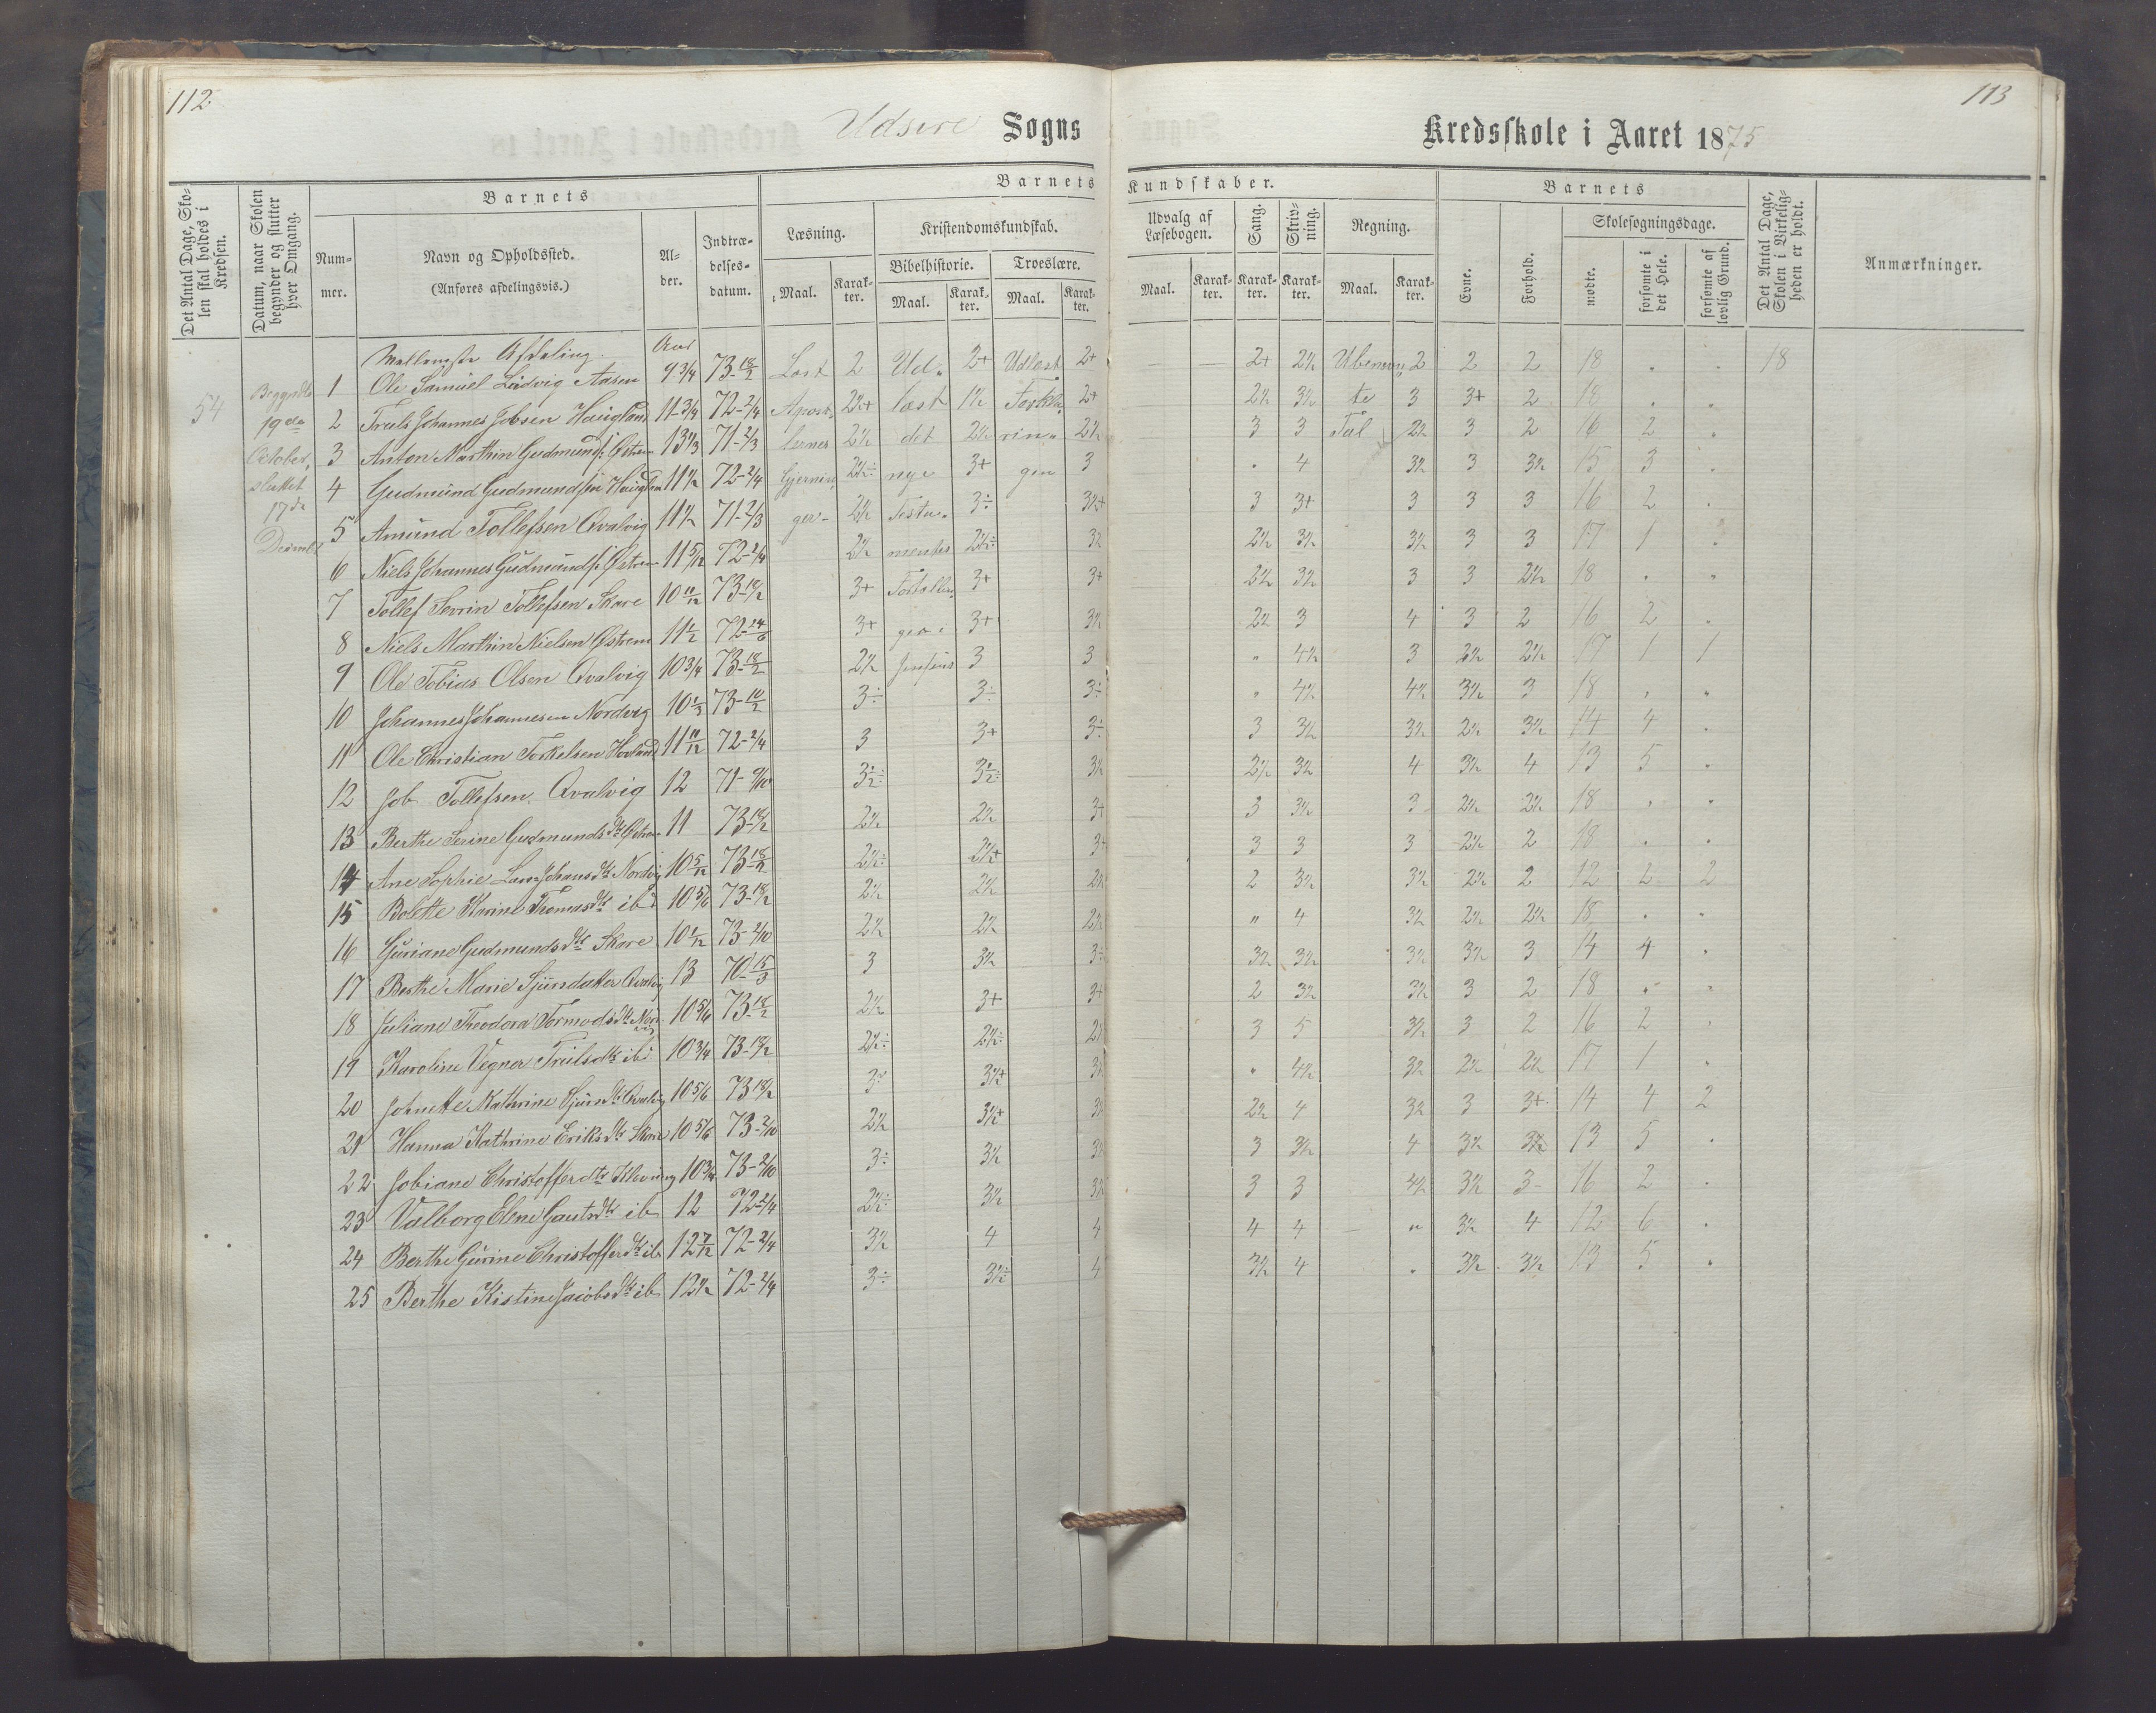 112
Udsire Sogns
Kredsskole i Aaret 1875
113
Det Antal Dage, Skolen skal holdes i Kredsen.
Datum, naar Skolen begynder og slutter hver Omgang.
Barnets
Nummer.
Navn og Opholdssted.
(Anføres afdelingsvis.)
Alder.
Indtrædelsesdatum.
Barnets Kundskaber.
Læsning.
Maal. Karakter.
Kristendomskundskab.
Bibelhistorie.
Maal. Karakter.
Troeslære.
Maal. Karakter.
Udvalg af Læsebogen.
Maal. Karakter.
Sang.
Karakter.
Skrivning.
Karakter.
Regning.
Maal. Karakter.
Barnets
Evne.
Forhold.
Skolesøgningsdage.
mødte.
forsømte i det Hele.
forsømte af lovlig Grund.
Det Antal Dage, Skolen i Virkeligheden er holdt.
Anmærkninger.
54
Begyndte
19de
October,
sluttet
17de
Mellemste Afdeling. Aar
1 Ole Samuel Ludvig Aasen 9 3/4 73-18/2 Læst 2 Ud- 2+ Udlæst 2+ — — 2+ 2½ Ubenevn 2 2 2 18 . . 18
2 Truls Johannes Jobsen Haugland 11 3/4 72-2/4 Apost- 2½+ læst 1½ Forkla- 2+ 2½ 3½ te 3 3+ 2 18 . .
3 Anton Marthin Gudmunds. Østrem 13 1/3 71-2/3 lernes 2½ det 2½ rin- 2½ 3 3 Tal 2½ 3 2 16 2 .
4 Gudmund Gudmundsen Haugland 11½ 72-2/4 Gjernin 2½÷ nye 3+ gen 3 . 4 3½ 3 3½ 15 3 .
5 Amund Tollefsen Qvalvig 11½ 71-2/3 ger- 2½ Testa- 3÷ 3½+ 3 3+ 3 3 3 16 2 .
6 Niels Johannes Gudmunds. Østrem 11 5/12 72-2/4 2½ mentes 2½÷ 3½ 2½ 3½ 3½ 3 3 17 1 .
7 Tollef Sevrin Tollefsen Skare 10 11/12 73-18/2 3+ Fortællin 3+ 3+ 2½ 3½ 3 3 2½ 18 . .
8 Niels Marthin Nielsen Østrem 11 1/2 72-14/6 3+ ger 3+ 3½ 2½ 3 4 3 2 16 2 .
9 Ole Tobias Olsen Qvalvig 10 3/4 73-18/2 2½ 3 3 " 4½ 3 2½ 2½ 17 1 1
10 Johannes Johannesen Nordvig 10 1/3 3÷ 3÷ 3÷ " 4½ 4½ 3½ 3 18 . .
11 Ole Christian Torkelsen Hovland 11 11/12 72-2/4 3 3+ 3÷ 3 3½ 3½ 2½ 3½ 14 4 .
12 Job Tollefsen Qvalvig 12 3½÷ 3½÷ 3½ 2½ 3½ 4 3½ 4 13 5 .
13 Berthe Serine Gudmundsdtr Østrem 11 73-18/2 2½ 2½ 3+ 3 3½ 3 2½ 2½ 18 . .
14 Ane Sophie 10 5/12 73-18/2 2½÷ 2½+ 3+ 3 3 3 2½ 2 18 . .
15 Bolette Karine Thomasdtr ib. 10 5/6 73-18/2 2½ 2½ 2½ 2 3½ 3½ 2½ 2 12 2 2
16 Guriane Gudmundsdtr Skare 10 1/12 73-2/10 2½ 2½ 2½ " 4 3½ 2½ 2½ 18 . .
17 Berthe Marie Sjursdatter Qvalvig 13 70-15/3 3 3½ 3÷ 3½ 3½ 3½ 3½ 3 14 4 .
18 Juliane Theodora Tormodsdtr Nord- 10 5/6 73-18/2 2½ 3+ 3+ 2 3½ 3½ 3 2 18 . .
19 Karoline Vegner Trulsdtr ib. 10 3/4 73-18/2 2½÷ 2½÷ 2½ 3 5 3½ 3 2 16 2 .
20 Johnette Kathrine Sjursdtr Qvalvig 10 5/6 73-18/2 3½+ 3½ " 4½ 3½ 2½ 2½ 17 1 .
21 Hanna Kathrine Eriksdtr Skare 10 5/6 73-2/10 2½ 3½+ 3½ 2½ 4 3½ 3 3+ 14 4 2
22 Jobiane Christofferdtr Klovning 10 3/4 73-2/10 3÷ 3½ 3½ 3 3½ 4 3½ 3½ 13 5 .
23 Valborg Elene Gautsdtr ib 12 72-2/4 2½÷ 3½ 3½ 3 3 4½ 3½ 3- 16 2 .
24 Berthe Gurine Christofferdtr ib 12 7/12 72-2/4 3½ 4 4 4 4 — " 3½ 4 12 6 .
25 Berthe Kistine Jacobsdtr ib 12½ 72-2/4 3÷ 3½÷ 4 3½ 4 . 3½ 3½ 13 5 .